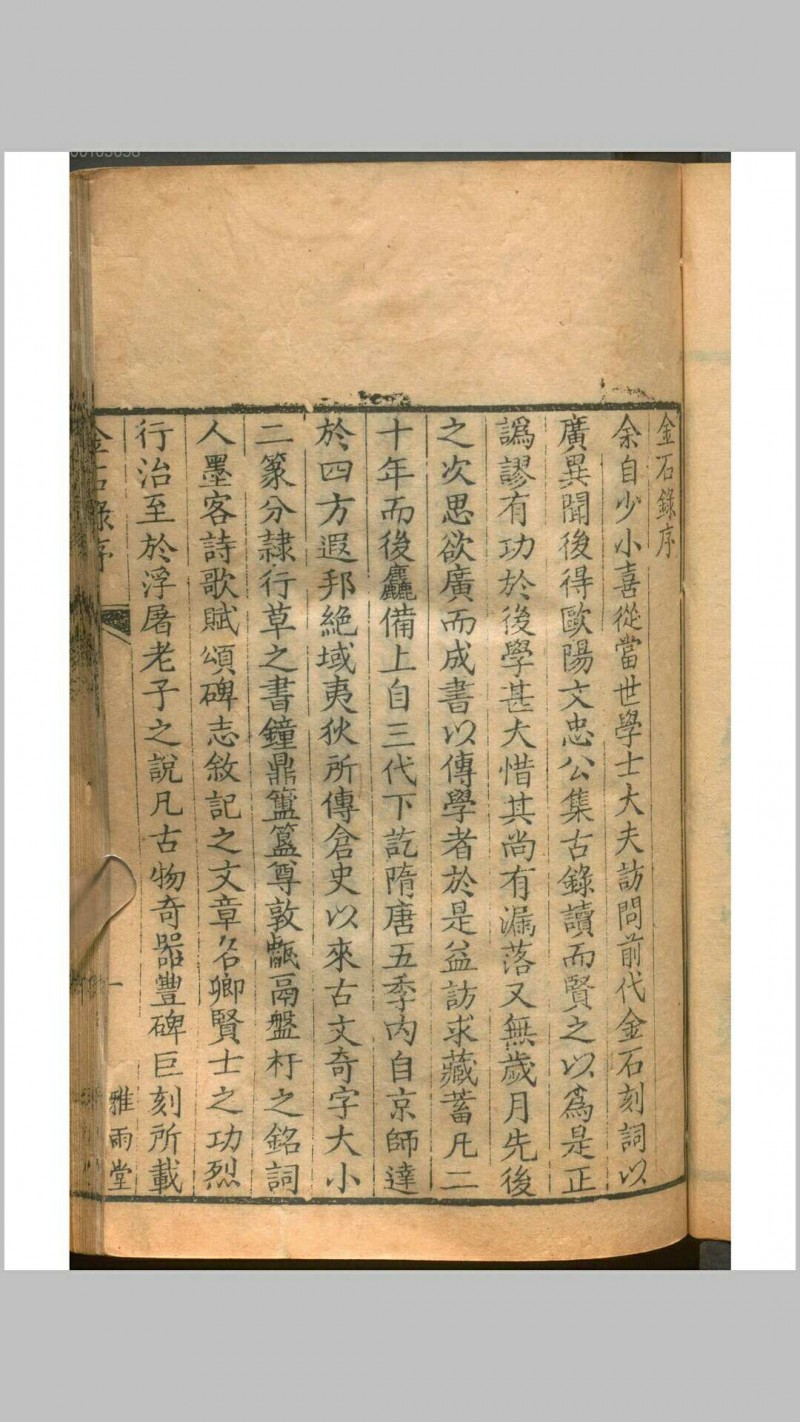 金石錄序
余自少小喜從當世學士大夫訪問前代金石刻詞以
廣異聞後得歐陽文忠公集古錄讀而賢之以爲是正
譌謬有功於後學甚大惜其尚有漏落又無歲月先後
之次思欲廣而成書以傳學者於是益訪求藏蓄凡二
十年而後麤備上自三代下訖隋唐五季内自京師達
於四方遐邦絕域夷狄所傳倉史以來古文奇字大小
二篆分隷行草之書鐘鼎簠簋尊敦甗鬲盤杅之銘詞
人墨客詩歌賦頌碑志敘記之文章名卿賢士之功烈
行治至於浮屠老子之說凡古物奇器豐碑巨刻所載
金石錄序
一
雅雨堂